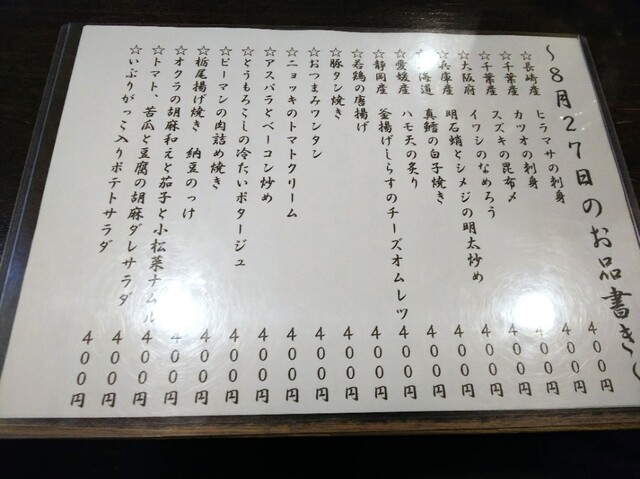 ～８月２７日のお品書き～
☆長崎産 ヒラマサの刺身 ４００円
☆千葉産 カツオの刺身 ４００円
☆千葉産 スズキの昆布〆 ４００円
☆千葉産 イワシのなめろう ４００円
☆大阪府 明石蛸とシメジの明太炒め ４００円
☆兵庫産 真鱈の白子焼き ４００円
海道 ハモ天の炙り ４００円
☆愛媛産 釜揚げしらすのチーズオムレツ ４００円
☆静岡産 ４００円
☆若鶏の唐揚げ ４００円
☆豚タン焼き ４００円
☆おつまみワンタン ４００円
☆ニョッキのトマトクリーム ４００円
☆アスパラとベーコン炒め ４００円
☆とうもろこしの冷たいポタージュ ４００円
☆ピーマンの肉詰め焼き ４００円
☆栃尾揚げ焼き 納豆のっけ ４００円
☆オクラの胡麻和えと茄子と小松菜ナムル ４００円
☆トマト、苦瓜と豆腐の胡麻ダレサラダ ４００円
☆いぶりがっこ入りポテトサラダ ４００円